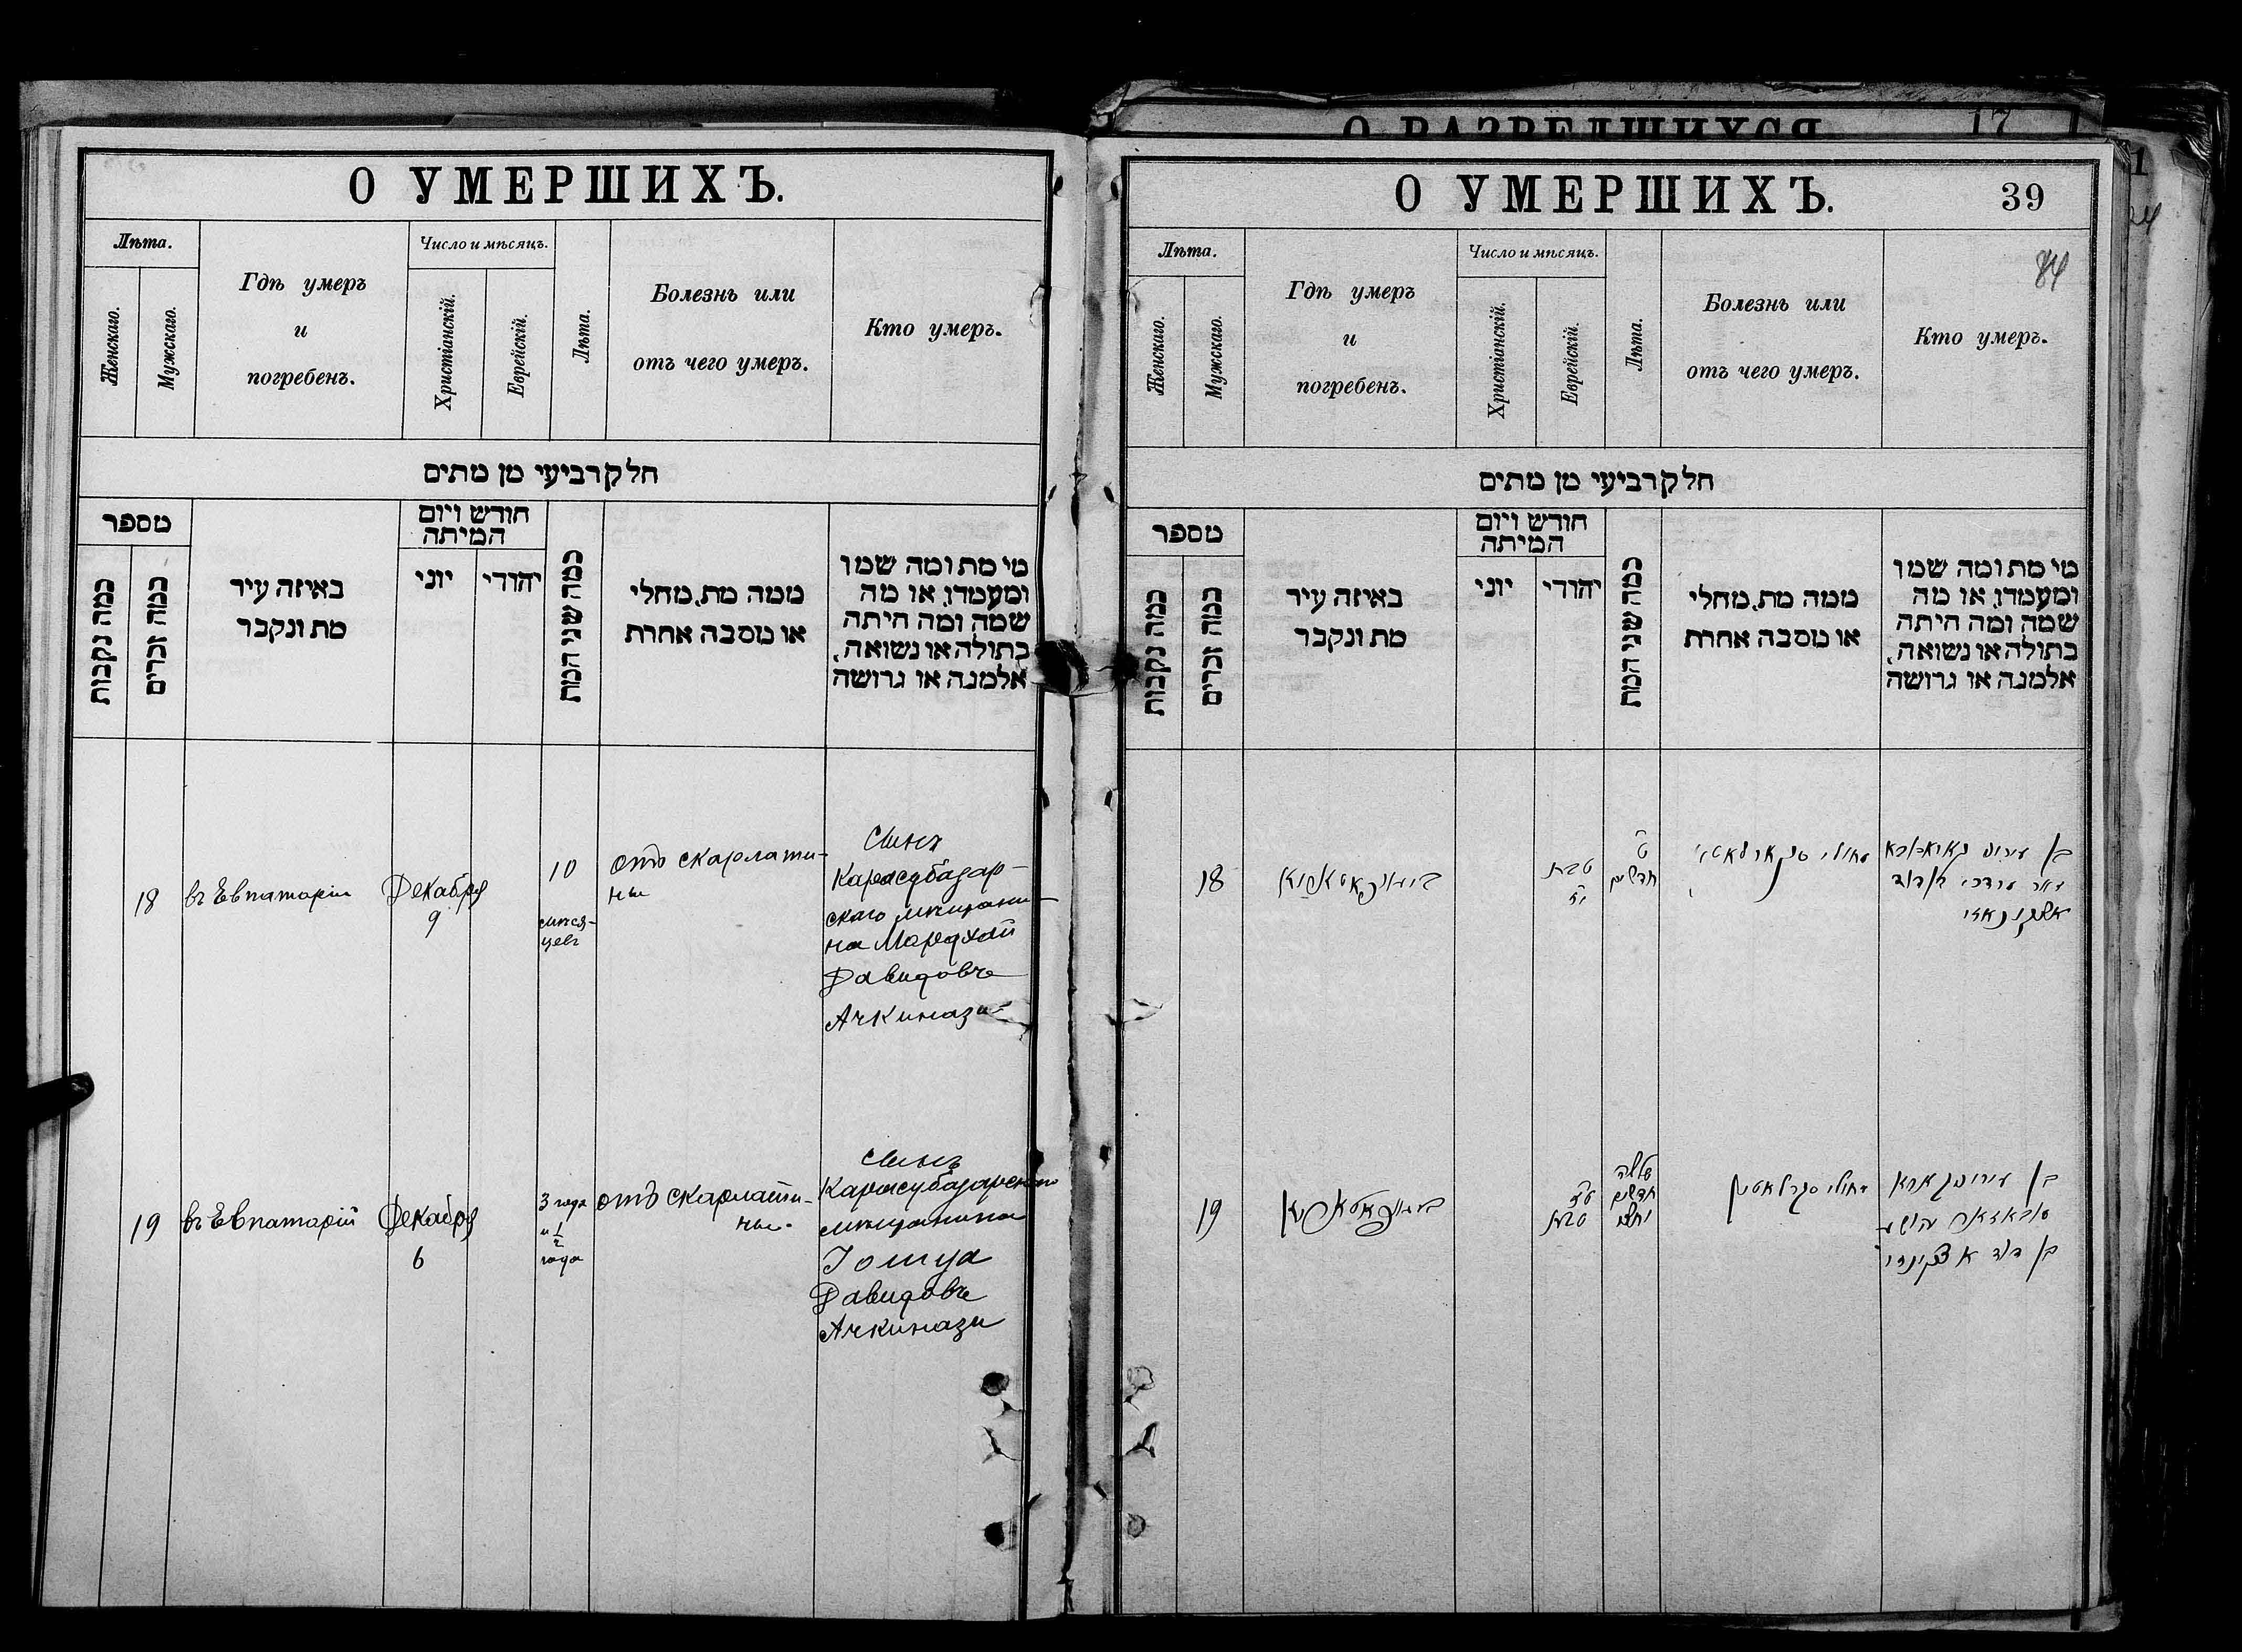 О УМЕРШИХЪ.
Лѣта.
Женскаго.
Мужскаго.
Гдѣ умеръ
и
погребенъ.
Число и мѣсяцъ.
Христіанскій.
Еврейскій.
Лѣта.
Болезнь или
отъ чего умеръ.
Кто умеръ.
חלק רביעי מן מתים
מספר
כמה נקבות
כמה זכרים
באיזה עיר
מת ונקבר
חודש ויום
המיתה
יוני
יהודי
כמה שני המת
ממה מת, מחלי
או מסבה אחרת
מי מת ומה שמו
ומעמדו, או מה
שמה ומה היתה
בתולה או נשואה,
אלמנה או גרושה
18
въ Евпаторіи
Декабря
9
10
мѣся-
цевъ
отъ скарлати-
ны
Сынъ
Карасубазар-
скаго мѣщани-
на Мордхай
Давидовъ
Ачкинази
19
въ Евпаторіи
Декабря
6
3 года
и 1/2
года
отъ скарлати-
ны.
Сынъ
Карасубазарскаго
мѣщанина
Іошуа
Давидовъ
Ачкинази
О РАЗВЕДШИХСЯ
17
О УМЕРШИХЪ.
39
84
Лѣта.
Женскаго.
Мужскаго.
Гдѣ умеръ
и
погребенъ.
Число и мѣсяцъ.
Христіанскій.
Еврейскій.
Лѣта.
Болезнь или
отъ чего умеръ.
Кто умеръ.
חלק רביעי מן מתים
מספר
כמה נקבות
כמה זכרים
באיזה עיר
מת ונקבר
חודש ויום
המיתה
יוני
יהודי
כמה שני המת
ממה מת, מחלי
או מסבה אחרת
מי מת ומה שמו
ומעמדו, או מה
שמה ומה היתה
בתולה או נשואה,
אלמנה או גרושה
18
טבת
חדשים
בן
אשכנאזי
19
טבת
שלשה
בן
בן דוד